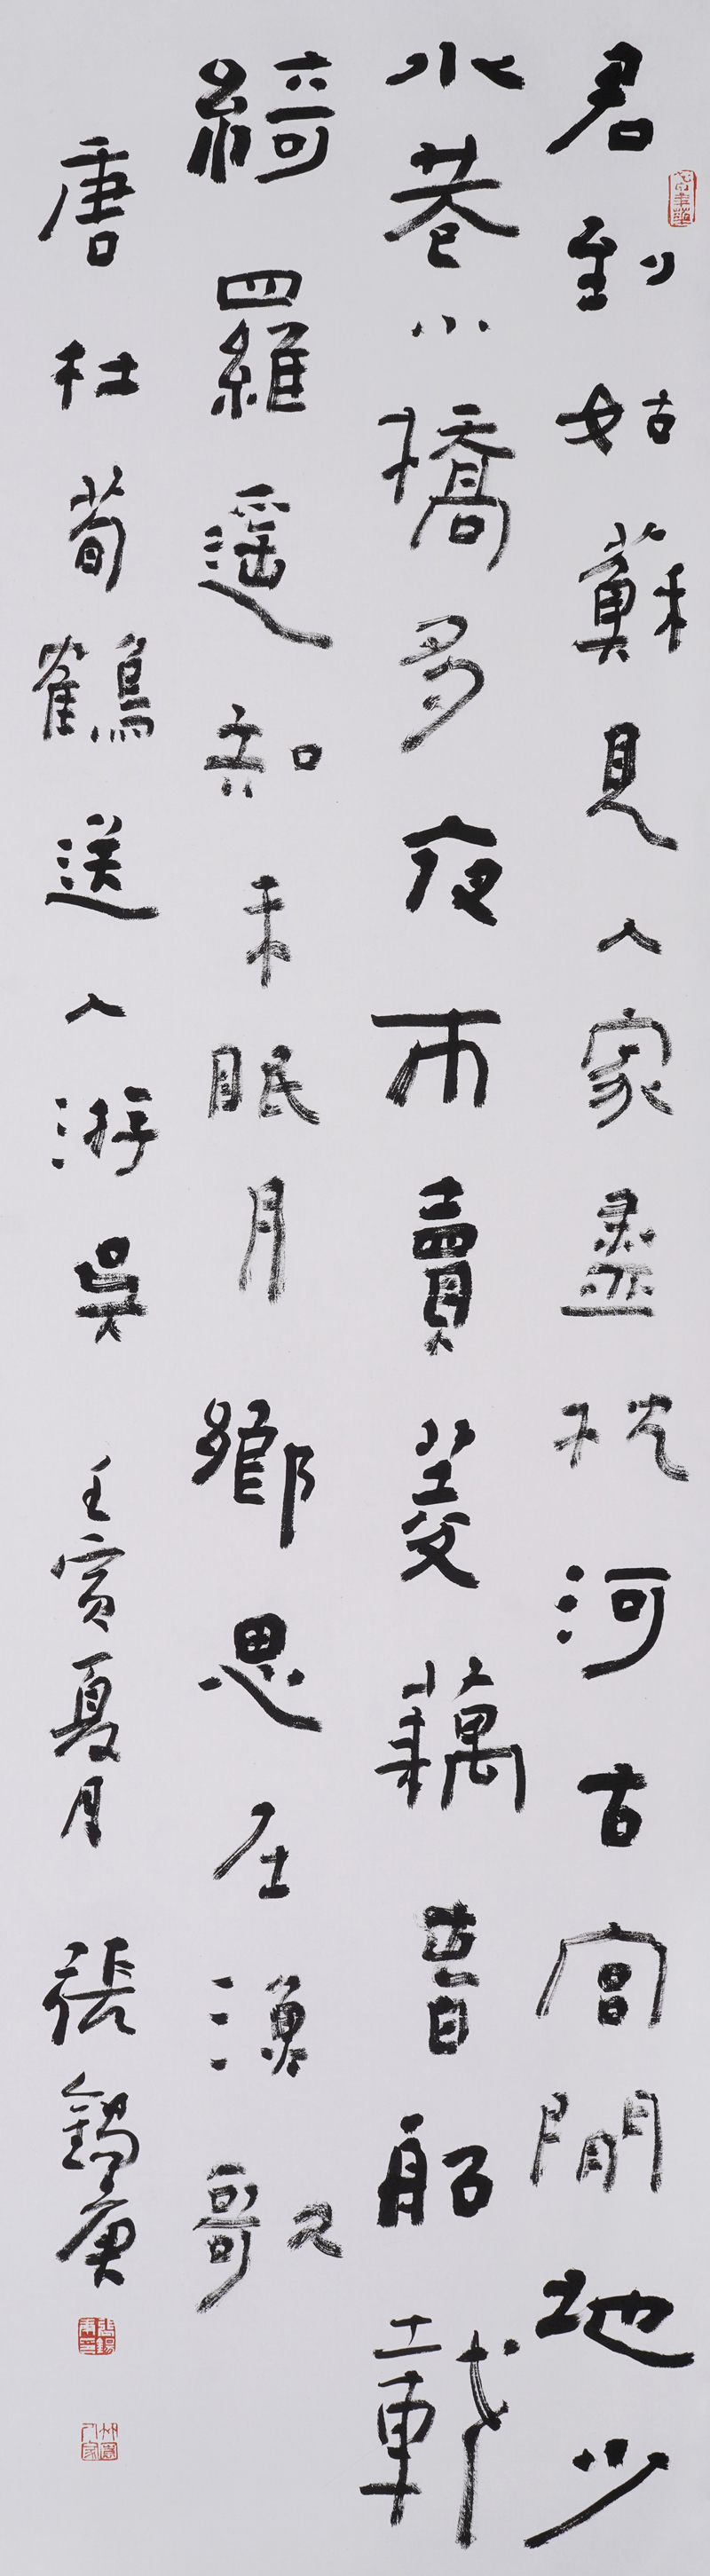 君到姑蘇見人家盡枕河古宮閒地少
水巷小橋多夜市賣菱藕春船載
綺羅遙知未眠月鄉思在漁歌
唐杜荀鶴送人游吳 壬寅夏月 張錫庚